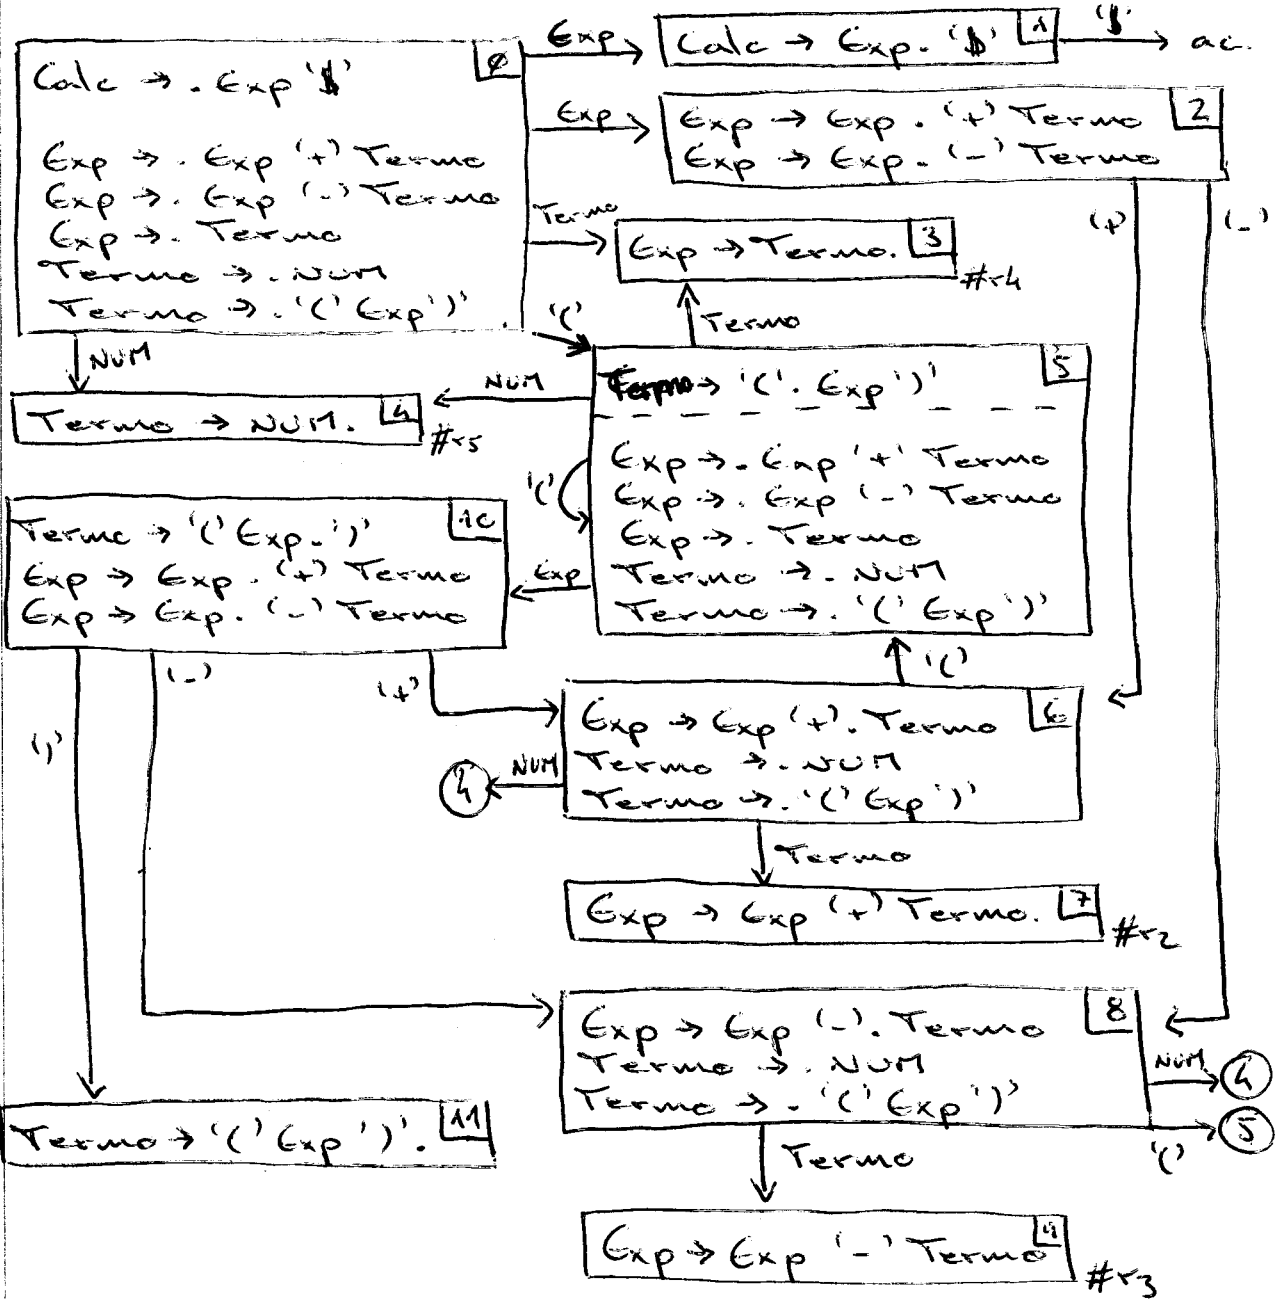 0
Calc → . Exp '$'
Exp → . Exp '+' Termo
Exp → . Exp '-' Termo
Exp → . Termo
Termo → . NUM
Termo → . '(' Exp ')'
Exp
Calc → Exp . '$' 1
'$'
ac.
Exp
Exp → Exp . '+' Termo 2
Exp → Exp . '-' Termo
'+'
'-'
Termo
Exp → Termo. 3
#r4
Termo
'('
NUM
Termo → NUM. 4
#r5
NUM
Termo → '(' . Exp ')' 5
Exp → . Exp '+' Termo
Exp → . Exp '-' Termo
Exp → . Termo
Termo → . NUM
Termo → . '(' Exp ')'
'('
Exp
Termo → '(' Exp . ')' 10
Exp → Exp . '+' Termo
Exp → Exp . '-' Termo
')'
'-'
'+'
'('
Exp → Exp '+' . Termo 6
Termo → . NUM
Termo → . '(' Exp ')'
NUM
4
Termo
Exp → Exp '+' Termo. 7
#r2
Exp → Exp '-' . Termo 8
Termo → . NUM
Termo → . '(' Exp ')'
NUM
4
'('
5
Termo
Termo → '(' Exp ')' . 11
Exp → Exp '-' Termo 9
#r3